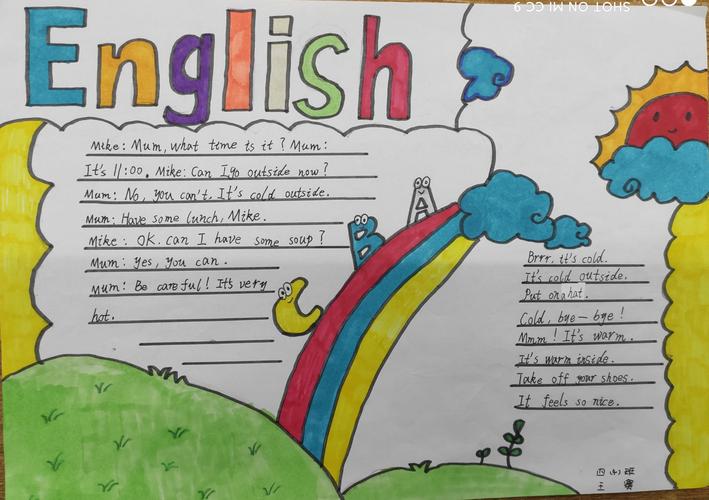 SHOT ON MI CC 9
English
Mike: Mum, what time is it? Mum:
It's 11:00. Mike: Can I go outside now?
Mum: No, you can't. It's cold outside.
Mum: Have some lunch, Mike.
Mike: OK. can I have some soup?
Mum: Yes, you can.
Mum: Be careful! It's very
hot.
A
B
C
Brrr. it's cold.
It's cold outside.
Put on a hat.
Cold, bye-bye!
Mmm! It's warm.
It's warm inside.
Take off your shoes.
It feels so nice.
四(4)班
王